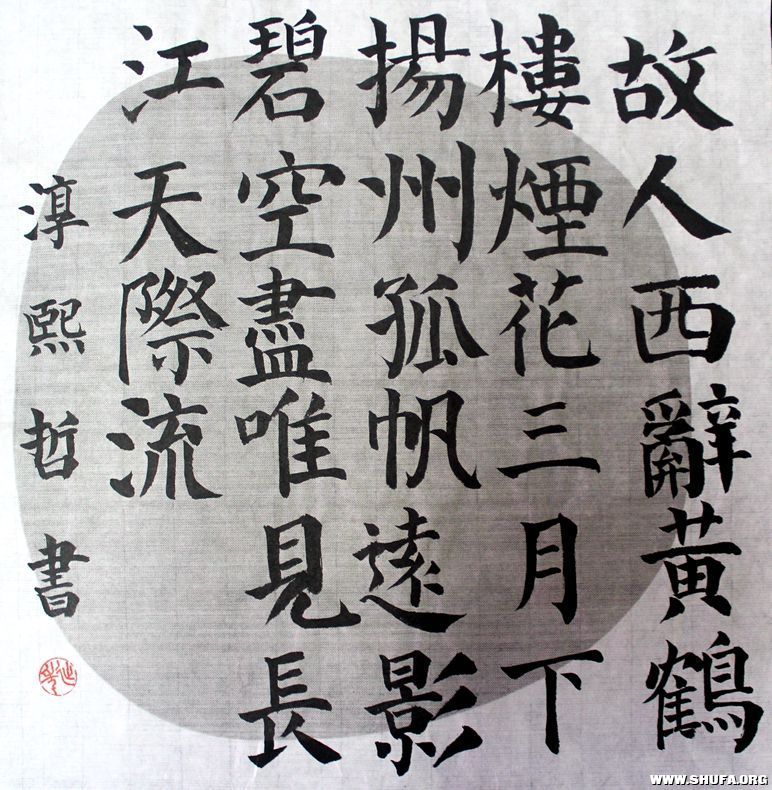 故人西辭黃鶴
樓煙花三月下
揚州孤帆遠影
碧空盡唯見長
江天際流
淳熙哲書
WWW.SHUFA.ORG